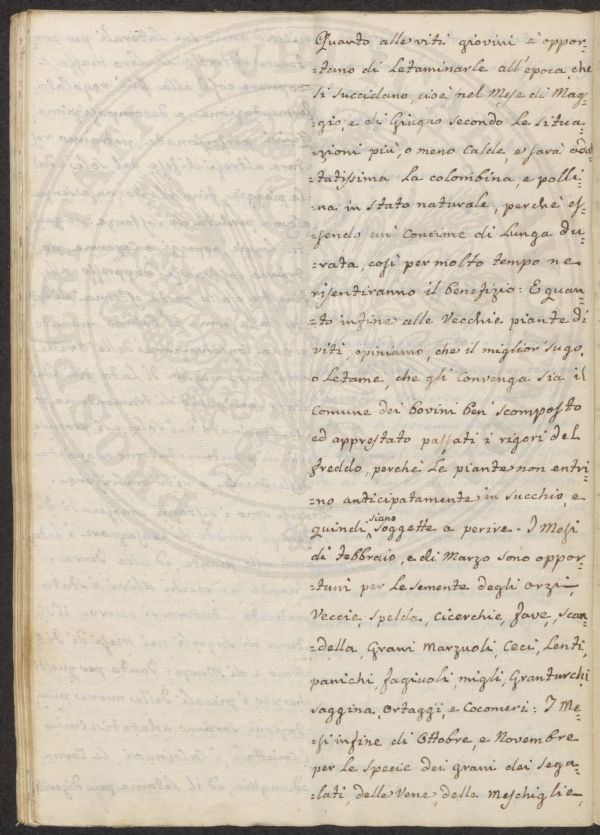 Quanto alle viti giovini è oppor-
-tuno di Letaminarle all'epoca che
si succidano, cioè nel Mese di Mag-
-gio, e di Giugno secondo le situa-
-zioni più, o meno Calde, e sarà adat-
-tatissima la colombina, e polli-
-na in stato naturale, perchè es-
-sendo un Concime di Lunga du-
-rata, così per molto tempo ne
risentiranno il benefizio: E quan-
-to infine alle Vecchie piante di
viti, opiniamo, che il miglior sugo,
o Letame, che gli Convenga sia il
Comune dei bovini ben scomposto
ed apprestato passati i rigori del
freddo, perchè le piante non entri-
-no anticipatamente in succhio, e
quindi siano soggette a perire. I Mesi
di febbraio, e di Marzo sono oppor-
-tuni per le semente degli Orzi,
Veccie, spelda, cicerchie, fave, scan-
-della, Grani Marzuoli, Ceci, Lenti,
panichi, fagiuoli, migli, Granturchi
saggina, Ortaggi, e Cocomeri: I Me-
-si infine di Ottobre, e Novembre
per le specie dei grani dei sega-
-lati, delle Vene, delle Meschiglie,